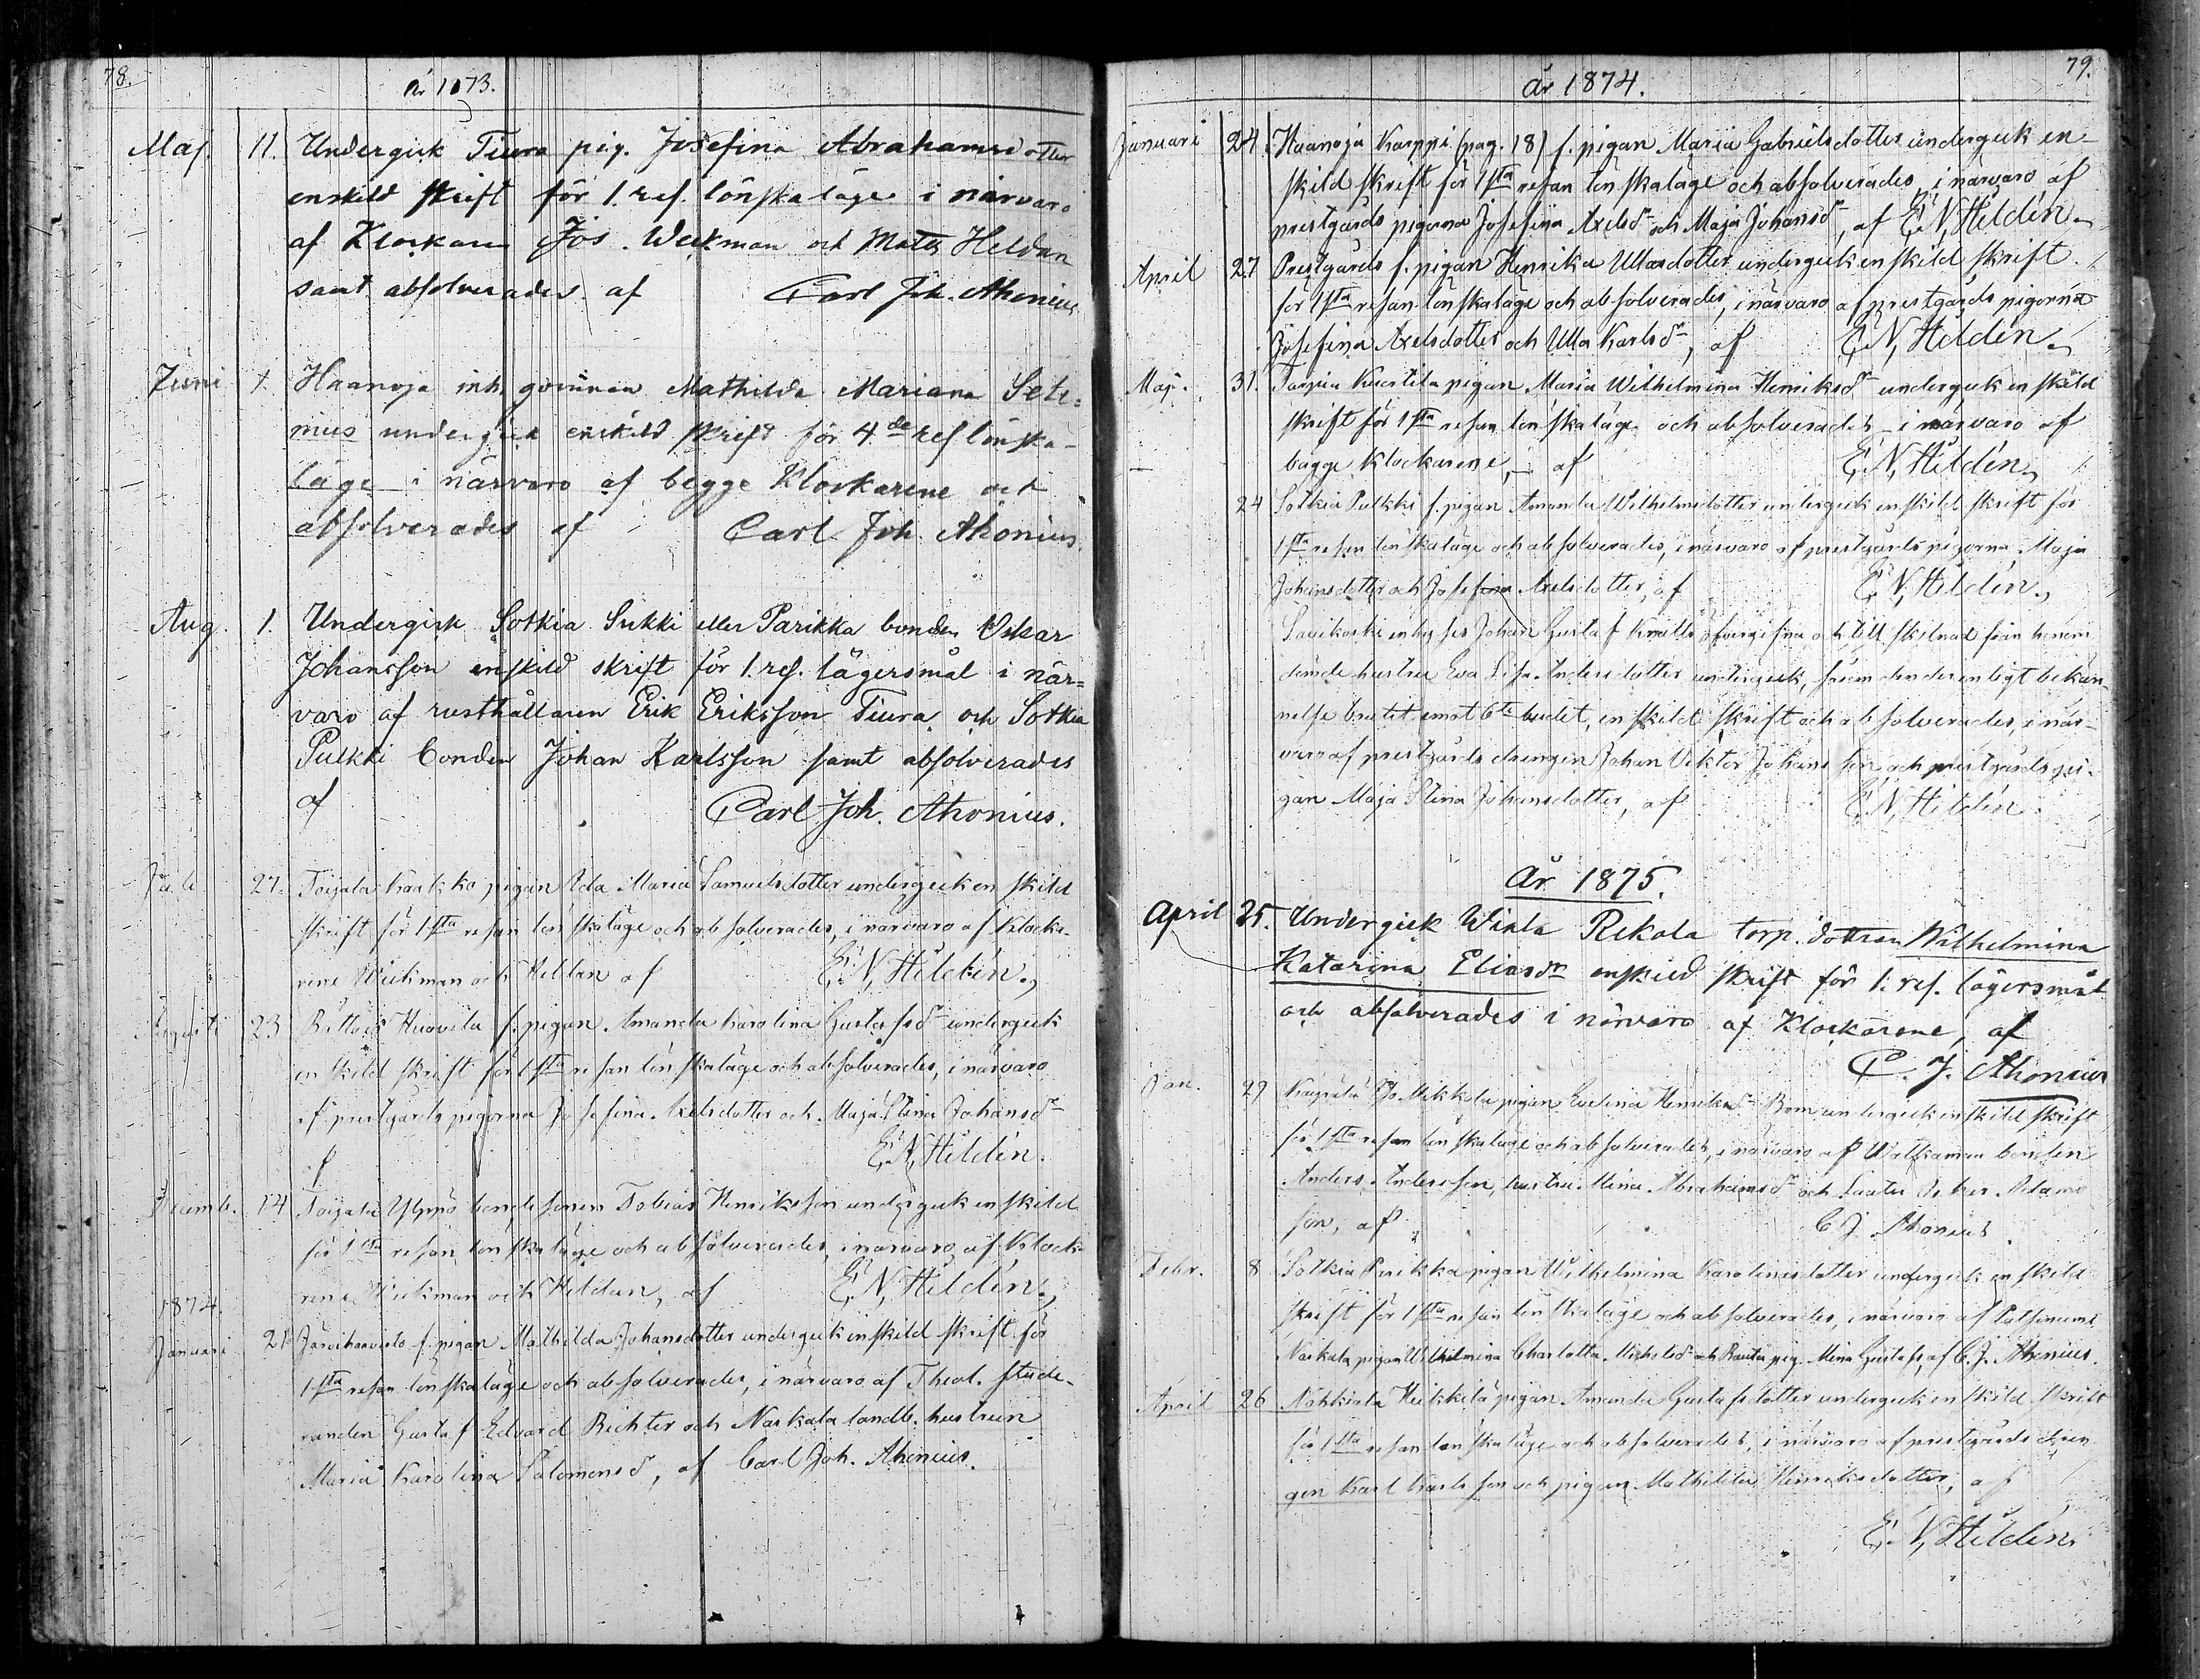 78.
år 1873.
Maj. 11. Undergick Tiura pig. Josefina Abrahamsdotter
enskild skrift för 1. res. lönskaläge i närvaro
af Klockaren Jos. Weckman och Matts Heldan
samt absolverades af Carl Joh. Ahonius
Juni 1. Haanoja inh. qvinnan Mathilda Mariana Sele-
nius undergick enskild skrift för 4de res lönska-
läge i närvaro af begge Klockarene och
absolverades af Carl Joh. Ahonius.
Aug. 1. Undergick Sotkia Sukki eller Parikka bonden Oskar
Johansson enskild skrift för 1. res. lägersmål i när-
varo af rusthållaren Erik Eriksson Tiura och Sotkia
Pulkki bonden Johan Karlsson samt absolverades
af Carl Joh. Ahonius.
Juli 27. Toijala Kaukko pigan Ada Maria Samuelsdotter undergick enskild
skrift för 1sta resan lönskaläge och absolverades, i närvaro af Klocka-
rene Weckman och Heldan af E. N. Hildén.
Augusti 23 Huovila f. pigan Amanda Karolina Gustafsdr undergick
enskild skrift för 1sta resan lönskaläge och absolverades, i närvaro
af prestgårds pigorna Josefina Axelsdotter och Maja Stina Johansdr
af E. N. Hildén.
Decemb. 14 Toijala Yljmö bondesonen Tobias Henriksson undergick enskild
för 1sta resan lönskaläge och absolverades, i närvaro af Klocka-
rene Weckman och Heldan, af E. N. Hildén.
1874.
Januari 21 Järvihaavisto f. pigan Mathilda Johansdotter undergick enskild skrift för
1sta resan lönskaläge och absolverades, i närvaro af Theol. stude-
randen Gustaf Edvard Richter och Naskala landb. hustrun
Maria Karolina Salomonsd, af Carl Joh. Ahonius.
79.
år 1874.
Januari 24. Haanoja Karppi (pag. 18) f. pigan Maria Gabrielsdotter undergick en-
skild skrift för 1sta resan lönskaläge och absolverades, i närvaro af
prestgårds pigorna Josefina Axelsdr och Maja Johansdr, af E. N. Hildén.
April 27 Prestgårds f. pigan Henrika Ullasdotter undergick enskild skrift
för 1sta resan lönskaläge och absolverades, i närvaro af prestgårds pigorna
Josefina Axelsdotter och Ulla Karlsdr, af E. N. Hildén.
Maj. 31. Knuutila pigan Maria Wilhelmina Henriksdr undergick enskild
skrift för 1sta resan lönskaläge och absolverades i närvaro af
bägge Klockarene, af E. N. Hildén.
24 Sotkia Pulkki f. pigan Amanda Wilhelmsdotter undergick enskild skrift för
1sta resan lönskaläge och absolverades, i närvaro af prestgårds pigorna Maja
Johansdotter och Josefina Axelsdotter, af E. N. Hildén.
Savikoski inhyses Johan Gustaf öfvergifna och till skilnad från honom
dömde hustru Eva Lisa Andersdotter undergick, såsom den der enligt bekän-
nelse brutit emot 6te budet, enskild skrift och absolverades, i när-
varo af prestgårds drengen Johan Viktor Johansson och prestgårds pi-
gan Maja Stina Johansdotter, af E. N. Hildén.
År 1875.
April 25. Undergick Wiala Rekola torp. dottren Wilhelmina
Katarina Eliasdr enskild skrift för 1. res. lägersmål
och absolverades i närvaro af Klockarene, af
C. J. Ahonius
Jan. 29 Mikkola pigan Evelina Henriksdr undergick enskild skrift
för 1sta resan lönskaläge och absolverades, i närvaro af bonden
Anders Andersson, hustru Mina Abrahamsdr och Oskar Adams-
son, af C J Ahonius.
Febr. 8 Sotkia Parikka pigan Wilhelmina Karolinesdotter undergick enskild
skrift för 1sta resan lönskaläge och absolverades, i närvaro af
Naskala pigan Wilhelmina Charlotta och Rauta pig. Mina Gustafs, af C. J. Ahonius.
April 26 Nahkiala Heikkilä pigan Amanda Gustafsdotter undergick enskild skrift
för 1sta resan lönskaläge och absolverades, i närvaro af prestgårds dren-
gen Karl Karlsson och pigan Mathilda Henriksdotter, af
E. N. Hildén